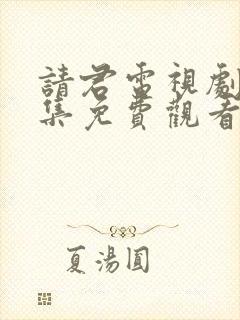 請君電視劇
集免費觀看
夏湯圓